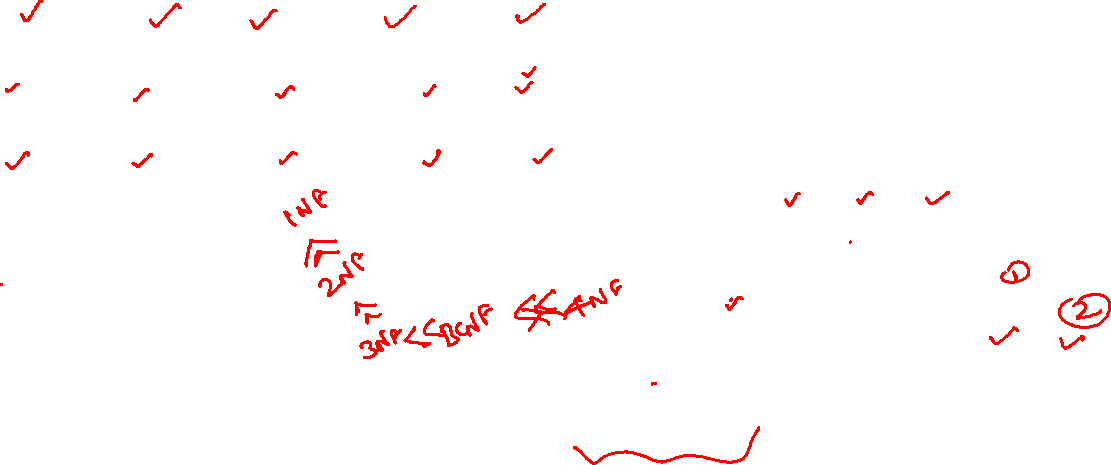 1NF
<<
2NF
<<
3NF << BCNF << 4NF
①
②